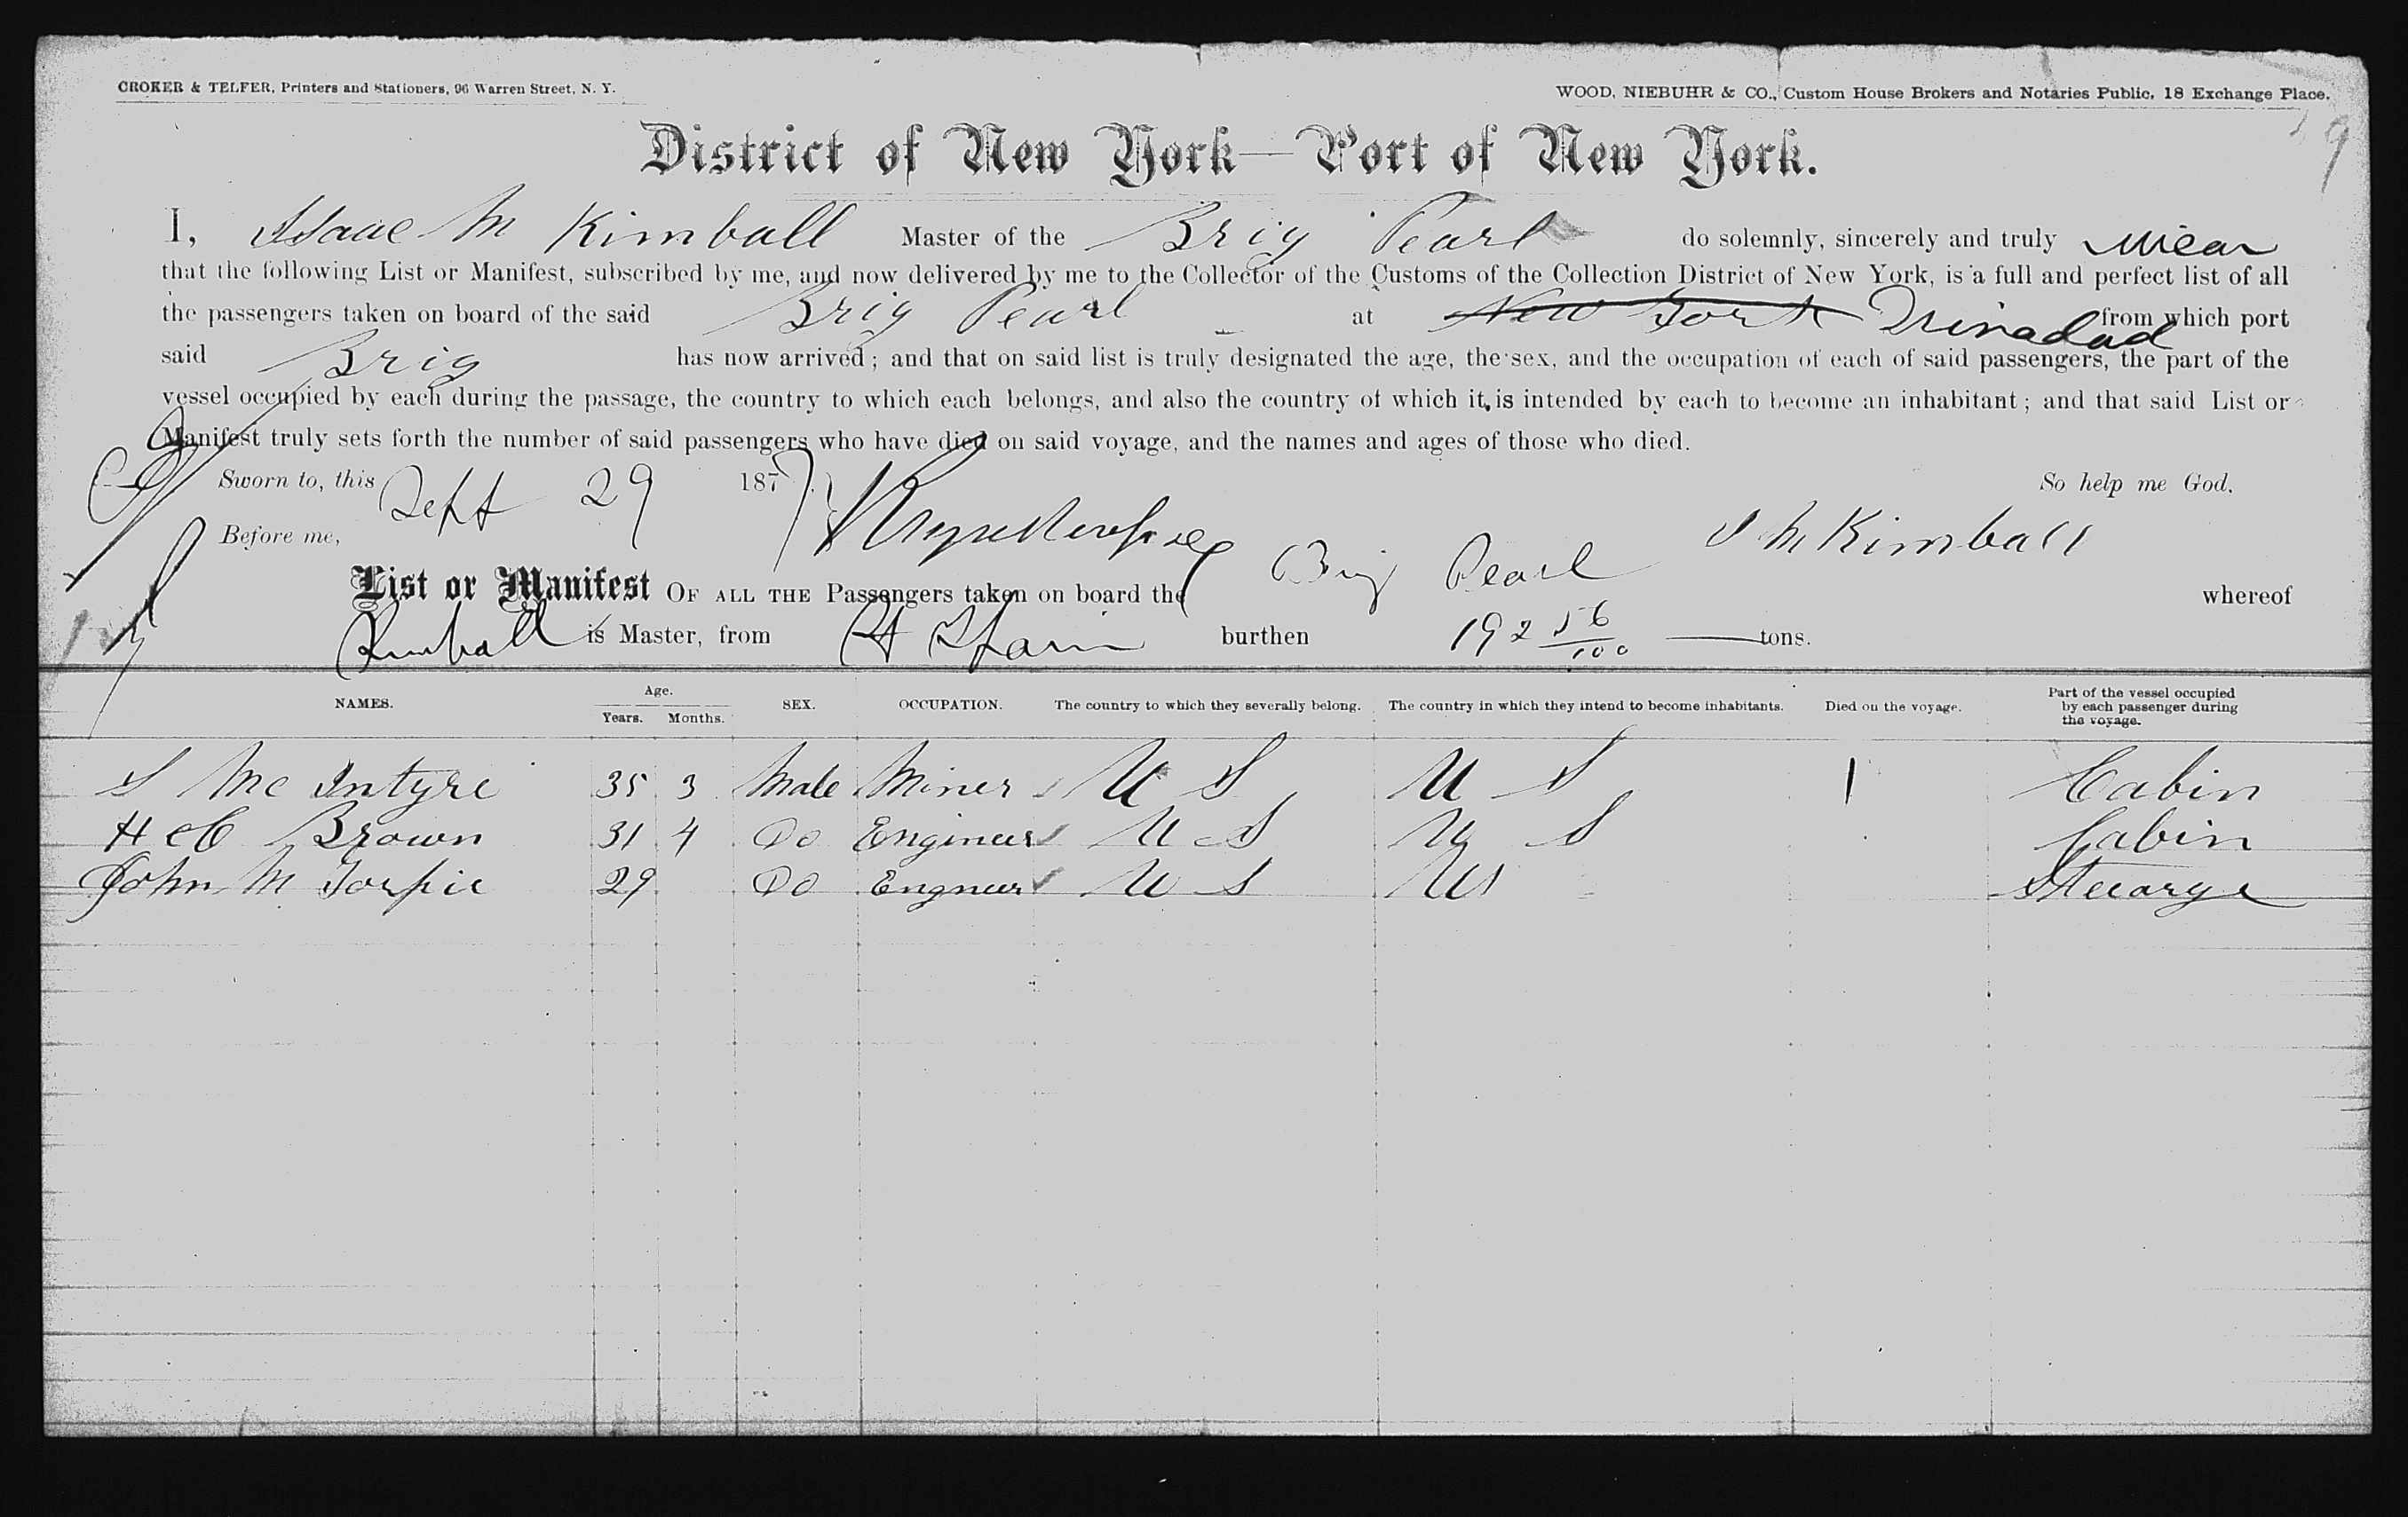 CROKER & TELFER, Printers and Stationers, 96 Warren Street, N. Y.
WOOD, NIEBUHR & CO., Custom House Brokers and Notaries Public, 18 Exchange Place.
District of New York—Port of New York.
I, Isaac M Kimball Master of the Brig Pearl do solemnly, sincerely and truly swear
that the following List or Manifest, subscribed by me, and now delivered by me to the Collector of the Customs of the Collection District of New York, is a full and perfect list of all
the passengers taken on board of the said Brig Pearl at New York Trinadad from which port
said Brig has now arrived; and that on said list is truly designated the age, the sex, and the occupation of each of said passengers, the part of the
vessel occupied by each during the passage, the country to which each belongs, and also the country of which it is intended by each to become an inhabitant; and that said List or
Manifest truly sets forth the number of said passengers who have died on said voyage, and the names and ages of those who died.
Sworn to, this Sept 29 1877 So help me God.
Before me, I M Kimball
List or Manifest OF ALL THE Passengers taken on board the Brig Pearl whereof
Kimball is Master, from Pt Spain burthen 192 56/100 tons.
NAMES. Age. Years. Months. SEX. OCCUPATION. The country to which they severally belong. The country in which they intend to become inhabitants. Died on the voyage. Part of the vessel occupied by each passenger during the voyage.
S Mc Intyre 35 3 Male Miner U S U S 1 Cabin
H C Brown 31 4 Do Engineer U S U S Cabin
John M Torpie 29 Do Engneer U S US Stearge